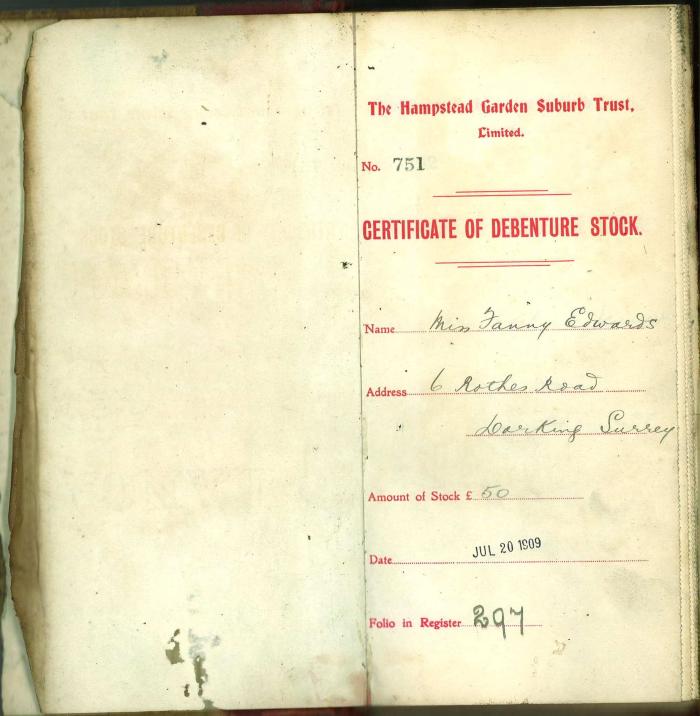 The Hampstead Garden Suburb Trust,
Limited.
No. 751
CERTIFICATE OF DEBENTURE STOCK.
Name Miss Fanny Edwards
Address 6 Rothes Road
Dorking Surrey
Amount of Stock £ 50
Date JUL 20 1909
Folio in Register 297